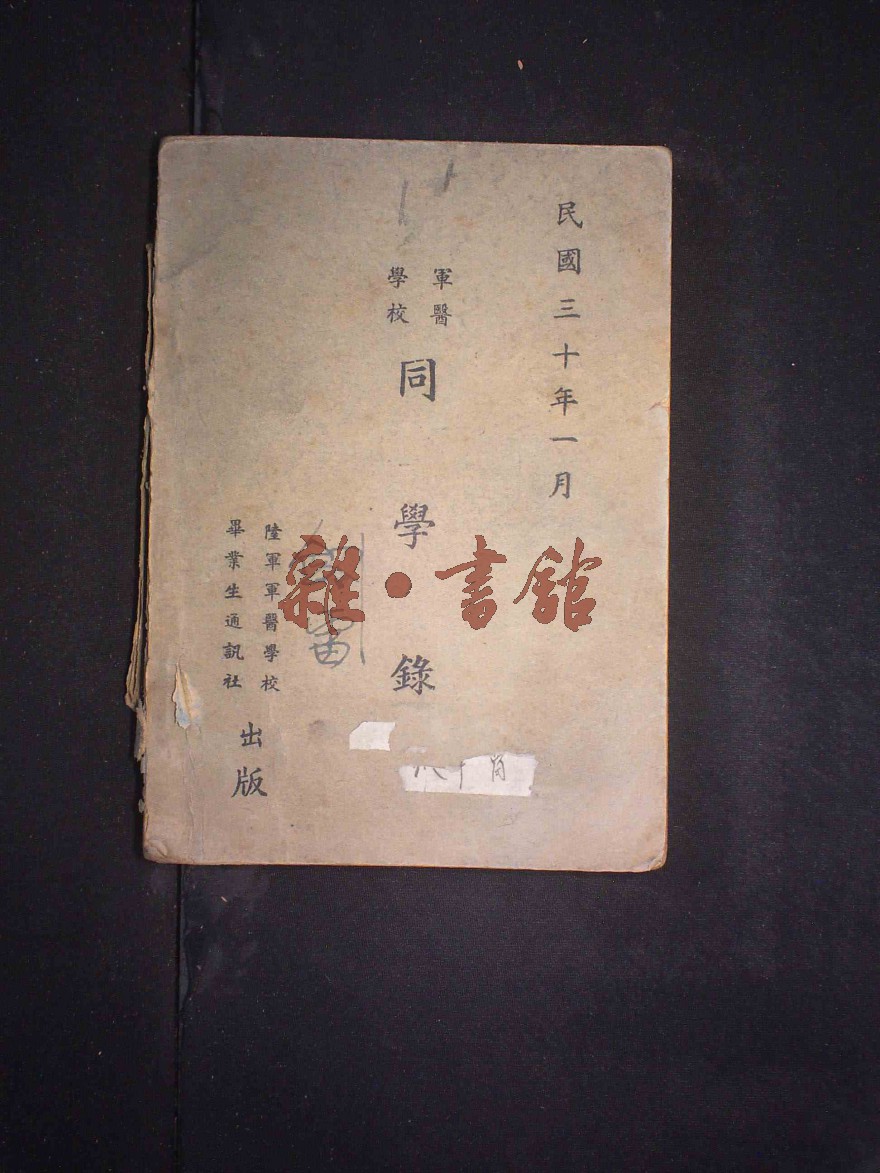 民國三十年一月
軍醫
學校
同學錄
陸軍軍醫學校
畢業生通訊社
出版
雜·書館